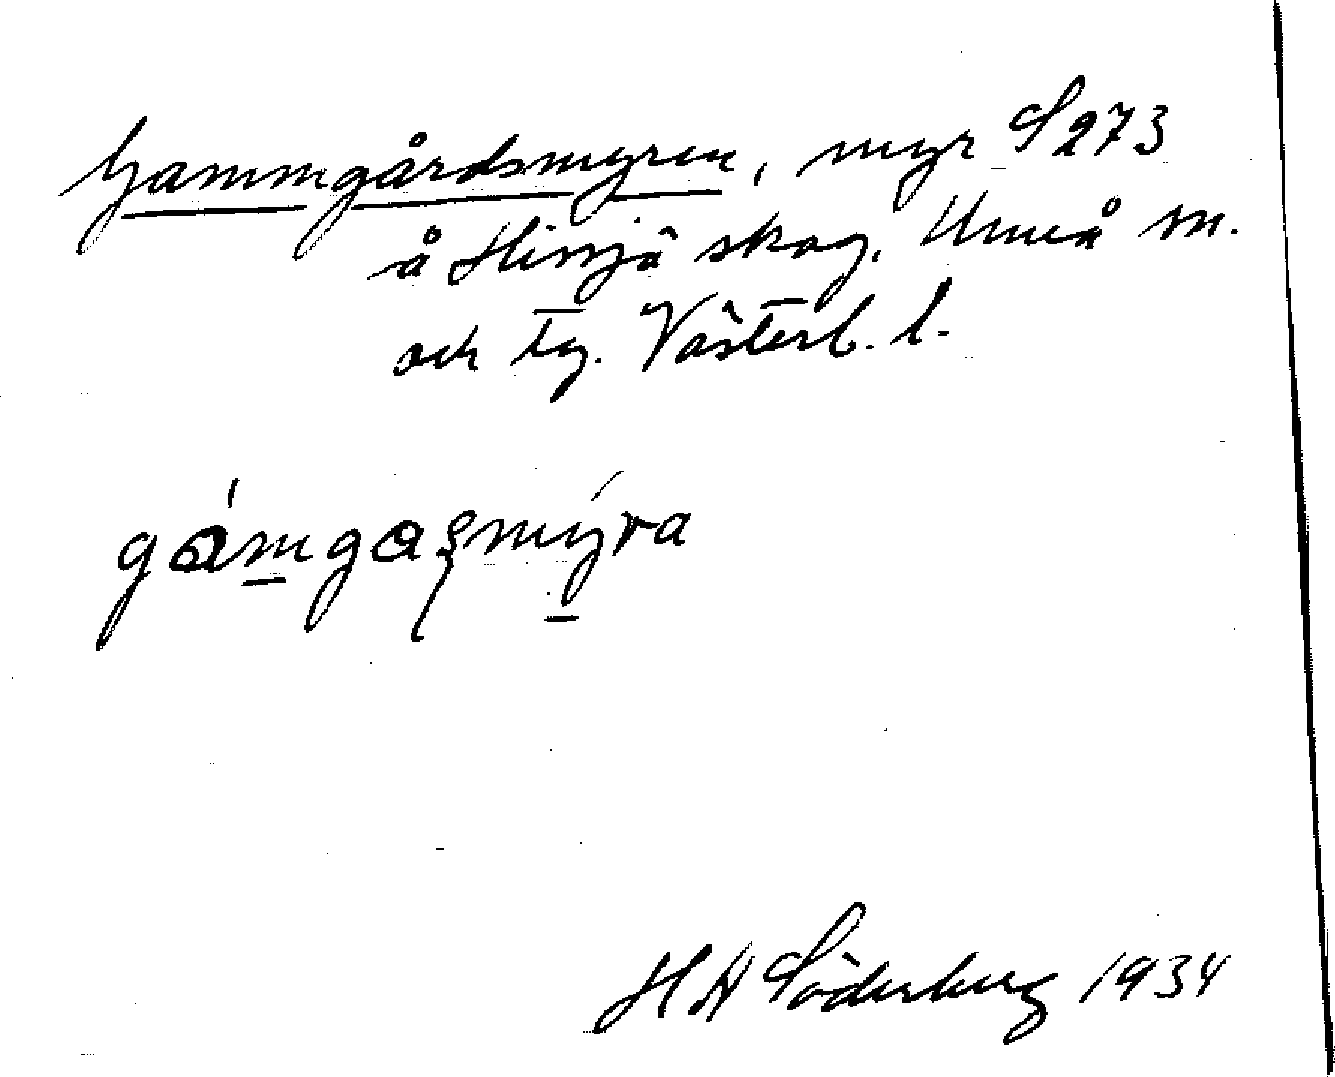 Gammgårdsmyren, myr S273
å Hissjö skog, Umeå sn.
och tg. Västerb. l.
gámgaʂmýra
H A Söderberg 1934